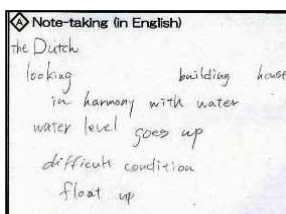 A Note-taking (in English)
the Dutch
looking building house
in harmony with water
water level goes up
difficult condition
float up